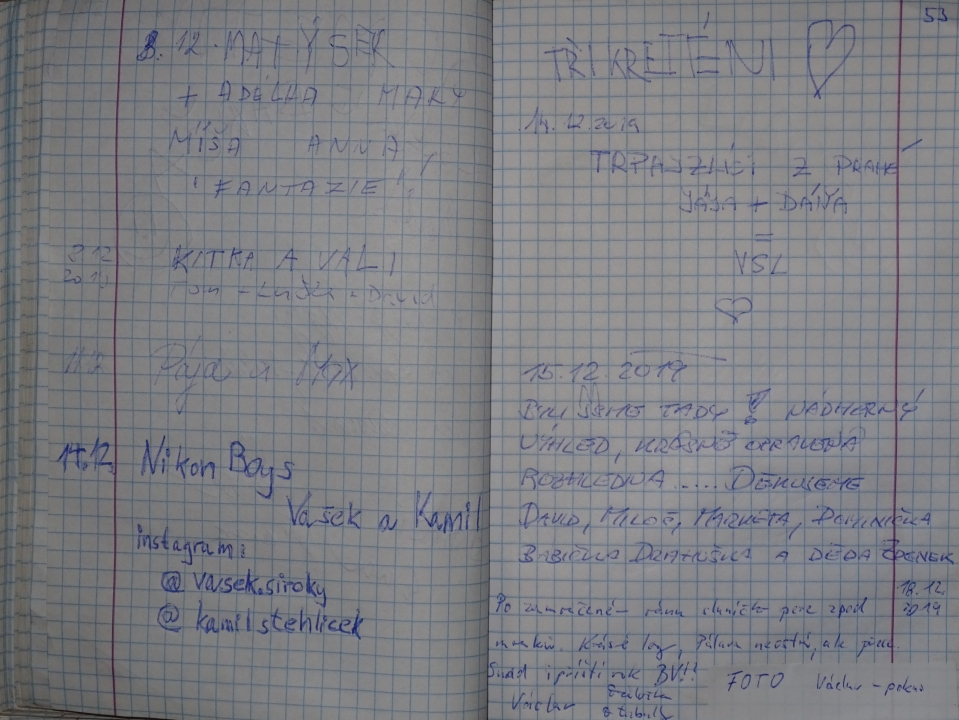 8. 12. MATÝSEK
+ ADÉLKA MAKY
MÍŠA ANNA
"FANTAZIE"
8.12 KITKA A VALI
2019 Tom - Luďek - David
11.12 Pája a Max
14.12. Nikon Boys
Vašek a Kamil
instagram:
@ vasek.siroky
@ kamil.stehlicek
53
TŘI KRETÉNI ♡
14. 12. 2019
TRPAJZLÍCI Z PRAHY
JÁJA + DÁŇA
=
VSL
♡
15.12. 2019
BYLI JSME TADY NÁDHERNÝ
VÝHLED, KRÁSNĚ OPRAVENÁ
ROZHLEDNA ..... DĚKUJEME
DAVID, MILOŠ, MARKÉTA, DOMINIČKA
BABIČKA DRAHUŠKA A DĚDA ČPENEK
18.12.
2019
Po zamračeném ránu sluníčko zpod
mraků. Pálava není, ale
Snad i příští rok BV!!
Václav
FOTO Václav